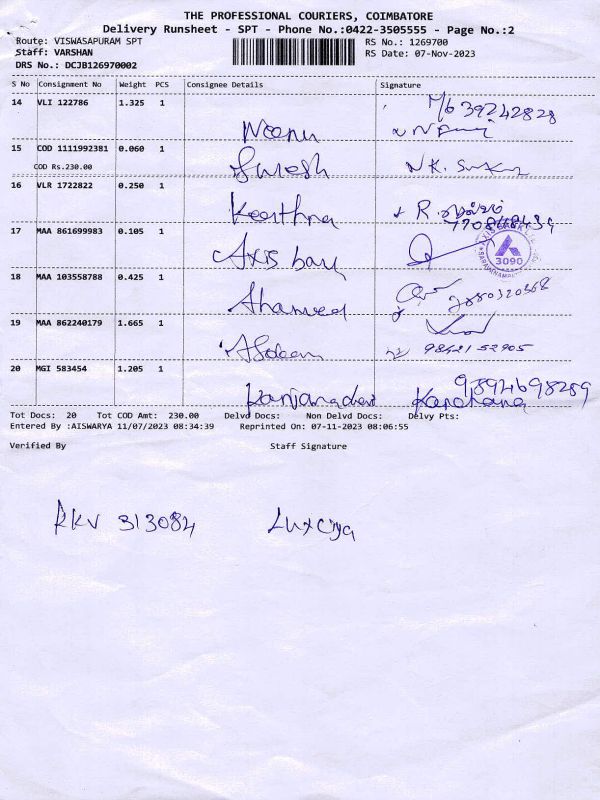 THE PROFESSIONAL COURIERS, COIMBATORE
Delivery Runsheet - SPT - Phone No.:0422-3505555 - Page No.:2
Route: VISWASAPURAM SPT RS No.: 1269700
Staff: VARSHAN RS Date: 07-Nov-2023
DRS No.: DCJB126970002
S No Consignment No Weight PCS Consignee Details Signature
14 VLI 122786 1.325 1
Meenu
15 COD 1111992381 0.060 1
COD Rs.230.00 Suresh
16 VLR 1722822 0.250 1
Keerthna R.
17 MAA 861699983 0.105 1
Axis bank 3090
18 MAA 103558788 0.425 1
Ahamed
19 MAA 862240179 1.665 1
98421 52905
20 MGI 583454 1.205 1
9894698289
Kanjanadevi Kanchana
Tot Docs: 20 Tot COD Amt: 230.00 Delvd Docs: Non Delvd Docs: Delvy Pts:
Entered By :AISWARYA 11/07/2023 08:34:39 Reprinted On: 07-11-2023 08:06:55
Verified By Staff Signature
RKV 313084 Luxciya